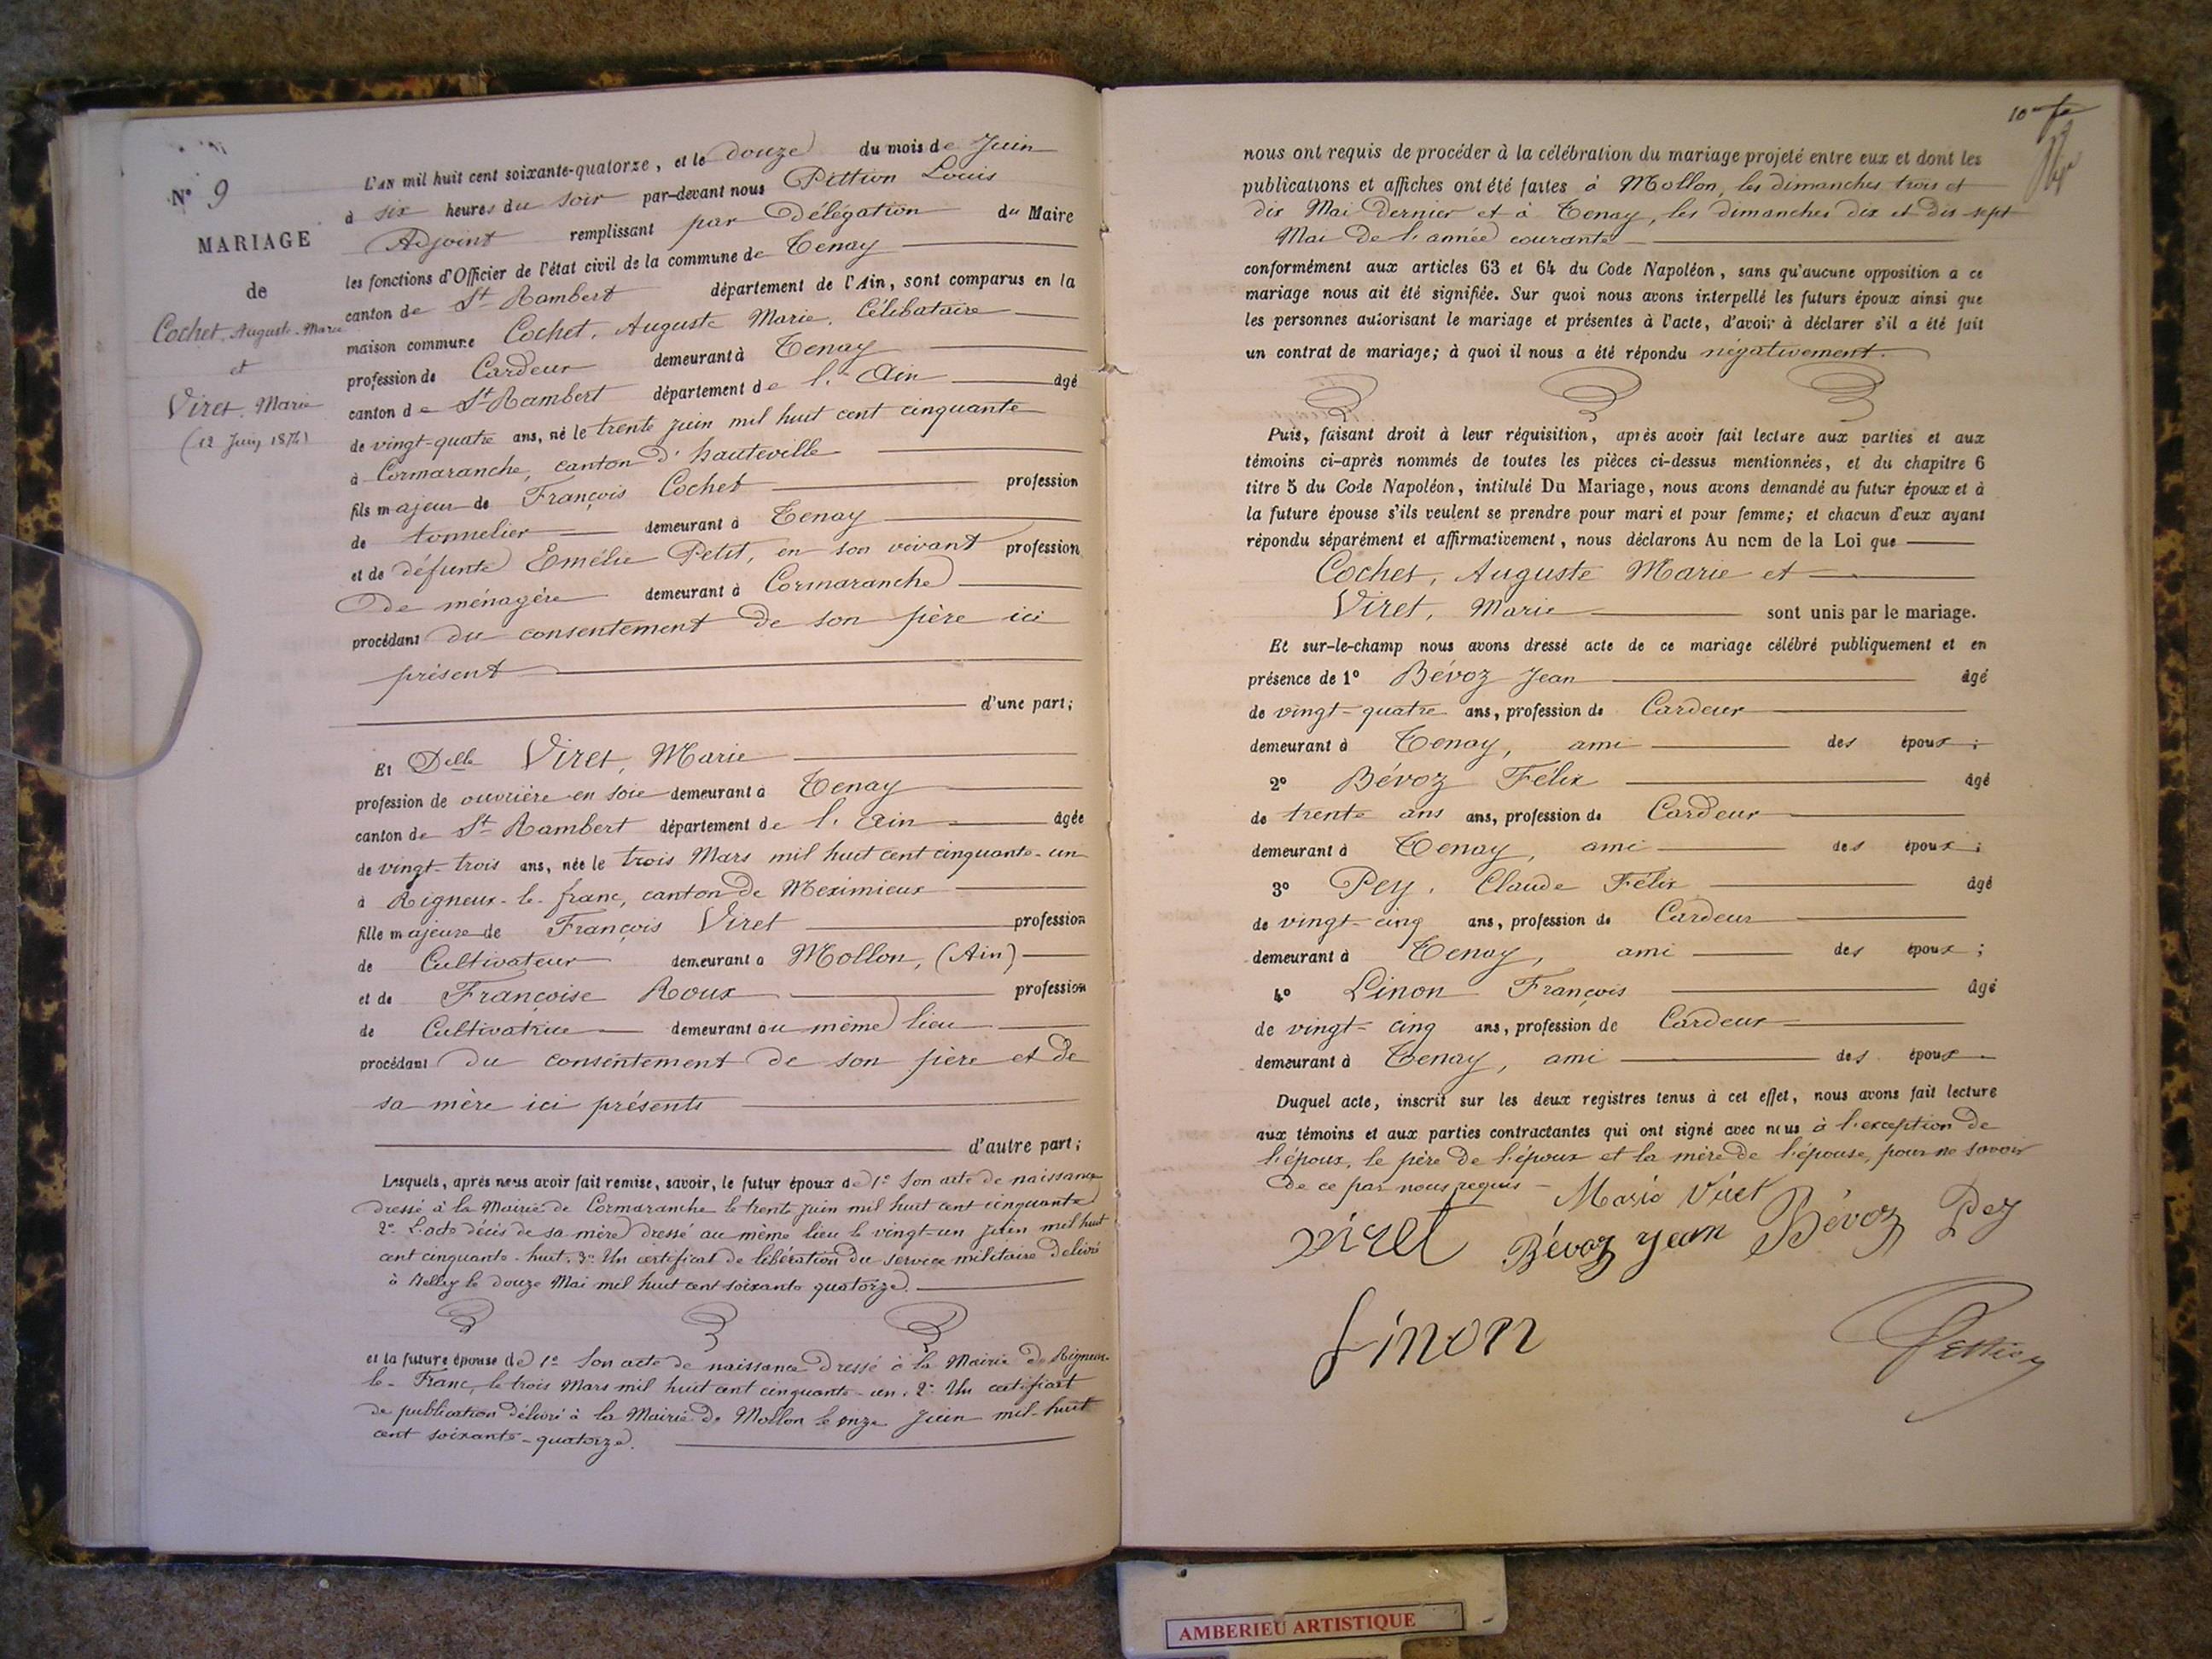 N° 9
MARIAGE
de
Cochet, Auguste-Marie
et
Viret, Marie
(12 Juin 1874)
L'AN mil huit cent soixante-quatorze, et le douze du mois de Juin
à six heures du soir par-devant nous Pittion Louis
Adjoint remplissant par Délégation du Maire
les fonctions d'Officier de l'état civil de la commune de Tenay
canton de St Rambert département de l'Ain, sont comparus en la
maison commune Cochet, Auguste Marie, Célibataire
profession de Cardeur demeurant à Tenay
canton de St Rambert département de l'Ain âgé
de vingt-quatre ans, né le trente juin mil huit cent cinquante
à Cormaranche, canton d'hauteville
fils majeur de François Cochet profession
de tonnelier demeurant à Tenay
et de défunte Emélie Petit, en son vivant profession
de ménagère demeurant à Cormaranche
procédant du consentement de son père ici
présent
d'une part;
Et Delle Viret, Marie
profession de ouvrière en soie demeurant à Tenay
canton de St Rambert département de l'Ain âgée
de vingt-trois ans, née le trois Mars mil huit cent cinquante-un
à Rigneux-le-franc, canton de Meximieux
fille majeure de François Viret profession
de Cultivateur demeurant à Mollon, (Ain)
et de Françoise Roux profession
de Cultivatrice demeurant au même lieu
procédant du consentement de son père et de
sa mère ici présents
d'autre part;
Lesquels, après nous avoir fait remise, savoir, le futur époux de 1° Son acte de naissance
dressé à la Mairie de Cormaranche le trente juin mil huit cent cinquante
2° L'acte décès de sa mère dressé au même lieu le vingt-un juin mil huit
cent cinquante-huit. 3° Un certificat de libération du service militaire delivré
à Belley le douze Mai mil huit cent soixante quatorze.
et la future épouse de 1° Son acte de naissance dressé à la Mairie de Rigneux-
le-Franc, le trois Mars mil huit cent cinquante-un. 2° Un certificat
de publication délivré à la Mairie de Mollon le onze Juin mil-huit
cent soixante-quatorze.
10me fe
nous ont requis de procéder à la célébration du mariage projeté entre eux et dont les
publications et affiches ont été faites à Mollon, les dimanches trois et
dix Mai dernier et à Tenay, les dimanches dix et dix-sept
Mai de l'année courante
conformément aux articles 63 et 64 du Code Napoléon, sans qu'aucune opposition a ce
mariage nous ait été signifiée. Sur quoi nous avons interpellé les futurs époux ainsi que
les personnes autorisant le mariage et présentes à l'acte, d'avoir à déclarer s'il a été fait
un contrat de mariage; à quoi il nous a été répondu négativement.
Puis, faisant droit à leur réquisition, après avoir fait lecture aux parties et aux
témoins ci-après nommés de toutes les pièces ci-dessus mentionnées, et du chapitre 6
titre 5 du Code Napoléon, intitulé Du Mariage, nous avons demandé au futur époux et à
la future épouse s'ils veulent se prendre pour mari et pour femme; et chacun d'eux ayant
répondu séparément et affirmativement, nous déclarons Au nom de la Loi que
Cochet, Auguste Marie et
Viret, Marie sont unis par le mariage.
Et sur-le-champ nous avons dressé acte de ce mariage célébré publiquement et en
présence de 1° Bévoz Jean âgé
de vingt-quatre ans, profession de Cardeur
demeurant à Tenay, ami des époux;
2° Bévoz Félix âgé
de trente ans ans, profession de Cardeur
demeurant à Tenay, ami des époux;
3° Pey, Claude Félix âgé
de vingt-cinq ans, profession de Cardeur
demeurant à Tenay, ami des époux;
4° Linon François âgé
de vingt-cinq ans, profession de Cardeur
demeurant à Tenay, ami des époux.
Duquel acte, inscrit sur les deux registres tenus à cet effet, nous avons fait lecture
aux témoins et aux parties contractantes qui ont signé avec nous à l'exception de
l'époux, le père de l'époux et la mère de l'épouse, pour ne savoir
de ce par nous requis - Marie Viret
viret Bévoz Jean Bévoz Pey
Linon Pittion
AMBERIEU ARTISTIQUE